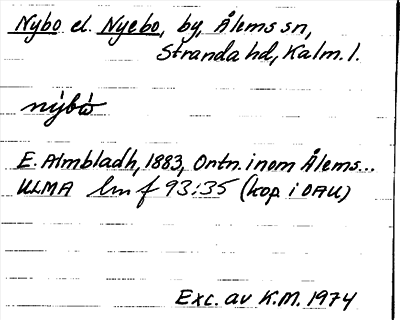 Nybo el. Nyebo, by, Ålems sn,
Stranda hd, Kalm. l.
nỳbò
E. Almbladh, 1883, Ortn. inom Ålems...
ULMA lm f 93:35 (kop. i OAU)
Exc. av K.M. 1974